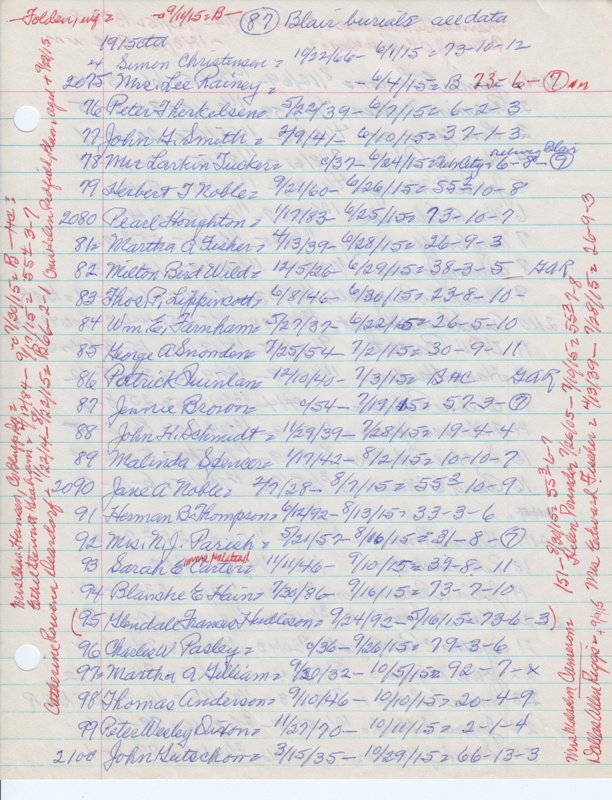 Folden, inf = - 9/11/15 = B - (87) Blair burials all data
1915 ctd
Simon Christensen = 10/22/66 - 6/1/15 = 73-10-12
2075 Mrs. Lee Rainey = - 6/4/15 = B 73-6-(7)
76 Peter Therkelsen = 5/22/39 - 6/7/15 = 6-2-3
77 John H. Smith = 2/9/41 - 6/10/15 = 37-1-3
78 Mrs Larkin Tucker = c/37 - 6/24/15 = 6-8-(7) Blair
79 Herbert T Noble = 9/21/60 - 6/26/15 = 55½-10-8
2080 Pearl Houghton = 1/17/83 - 6/25/15 = 73-10-7
81 = Martha A Fisher = 4/13/39 - 6/28/15 = 26-9-3
82 Milton Bird Wild = 12/5/26 - 6/29/15 = 38-3-5 GAR
83 Thos. P. Lippincott = 6/8/46 - 6/30/15 = 23-8-10-
84 Wm. E. Farnham = 5/27/37 - 6/22/15 = 26-5-10
85 George A Snowden = 7/25/54 - 7/2/15 = 30-9-11
86 Patrick Quinlan = 12/10/40 - 7/3/15 = B HC GAR
87 Jennie Brown = c/54 - 7/19/15 = 57-3-(7)
88 John H. Schmidt = 11/29/39 - 7/28/15 = 19-4-4
89 Malinda Spencer = 1/17/42 - 8/2/15 = 10-10-7
2090 Jane A Noble = 2/7/28 - 8/7/15 = 55½-10-9
91 Herman B. Thompson = 6/12/92 - 8/13/15 = 33-3-6
92 Mrs. N. J. Parish = 5/21/57 - 8/16/15 = 31-8-(7)
93 Sarah E Carter = 11/11/46 - 9/10/15 = 39-8-11
94 Blanche E Hain = 7/30/86 - 9/16/15 = 73-7-10
(95 Glendale Francis Hudleson = 9/24/92 - 5/16/15 = 73-6-3)
96 Charles W Pasley = c/36 - 9/26/15 = 79-3-6
97 = Martha A Gilliam = 9/30/32 - 10/5/15 = 92-7-x
98 Thomas Anderson = 9/10/46 - 10/10/15 = 20-4-9
99 Peter Wesley Dixon = 11/27/70 - 10/11/15 = 2-1-4
2100 John Gutschow = 3/15/35 - 10/29/15 = 66-13-3
Catherine Rowena Deardorf - 1/22/14 - 1/29/15 = B 66-2-1
Mrs Marion Cameron 151 - 5/31/15 = 55½-6-7
Helen Ponder 7/26/05 - 7/10/15 = 55½-7-8
Dallas Allen Riggs = 9/15 Mrs Edward Fisher = 4/3/39 - 7/28/15 = 26-9-3